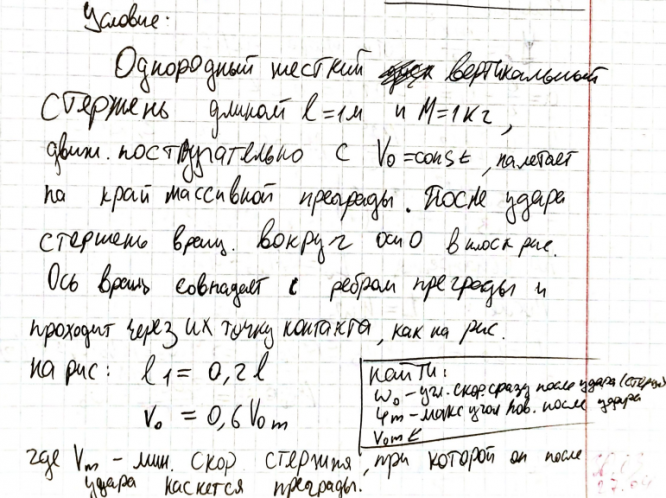 Условие:
Однородный жесткий вертикальный
стержень длиной l=1м и M=1кг,
движ. поступательно с V₀=const, налетает
на край массивной преграды. После удара
стержень вращ. вокруг оси O в плоск рис.
Ось вращ совпадает с ребром преграды и
проходит через их точку контакта, как на рис.
на рис: l₁ = 0,2l
V₀ = 0,6V₀m
где Vm – мин. скор. стержня, при которой он после
удара каснется преграды.
найти:
ω₀ – угл. скор. сразу после удара (стержн)
φm – макс угол пов. после удара
V₀m